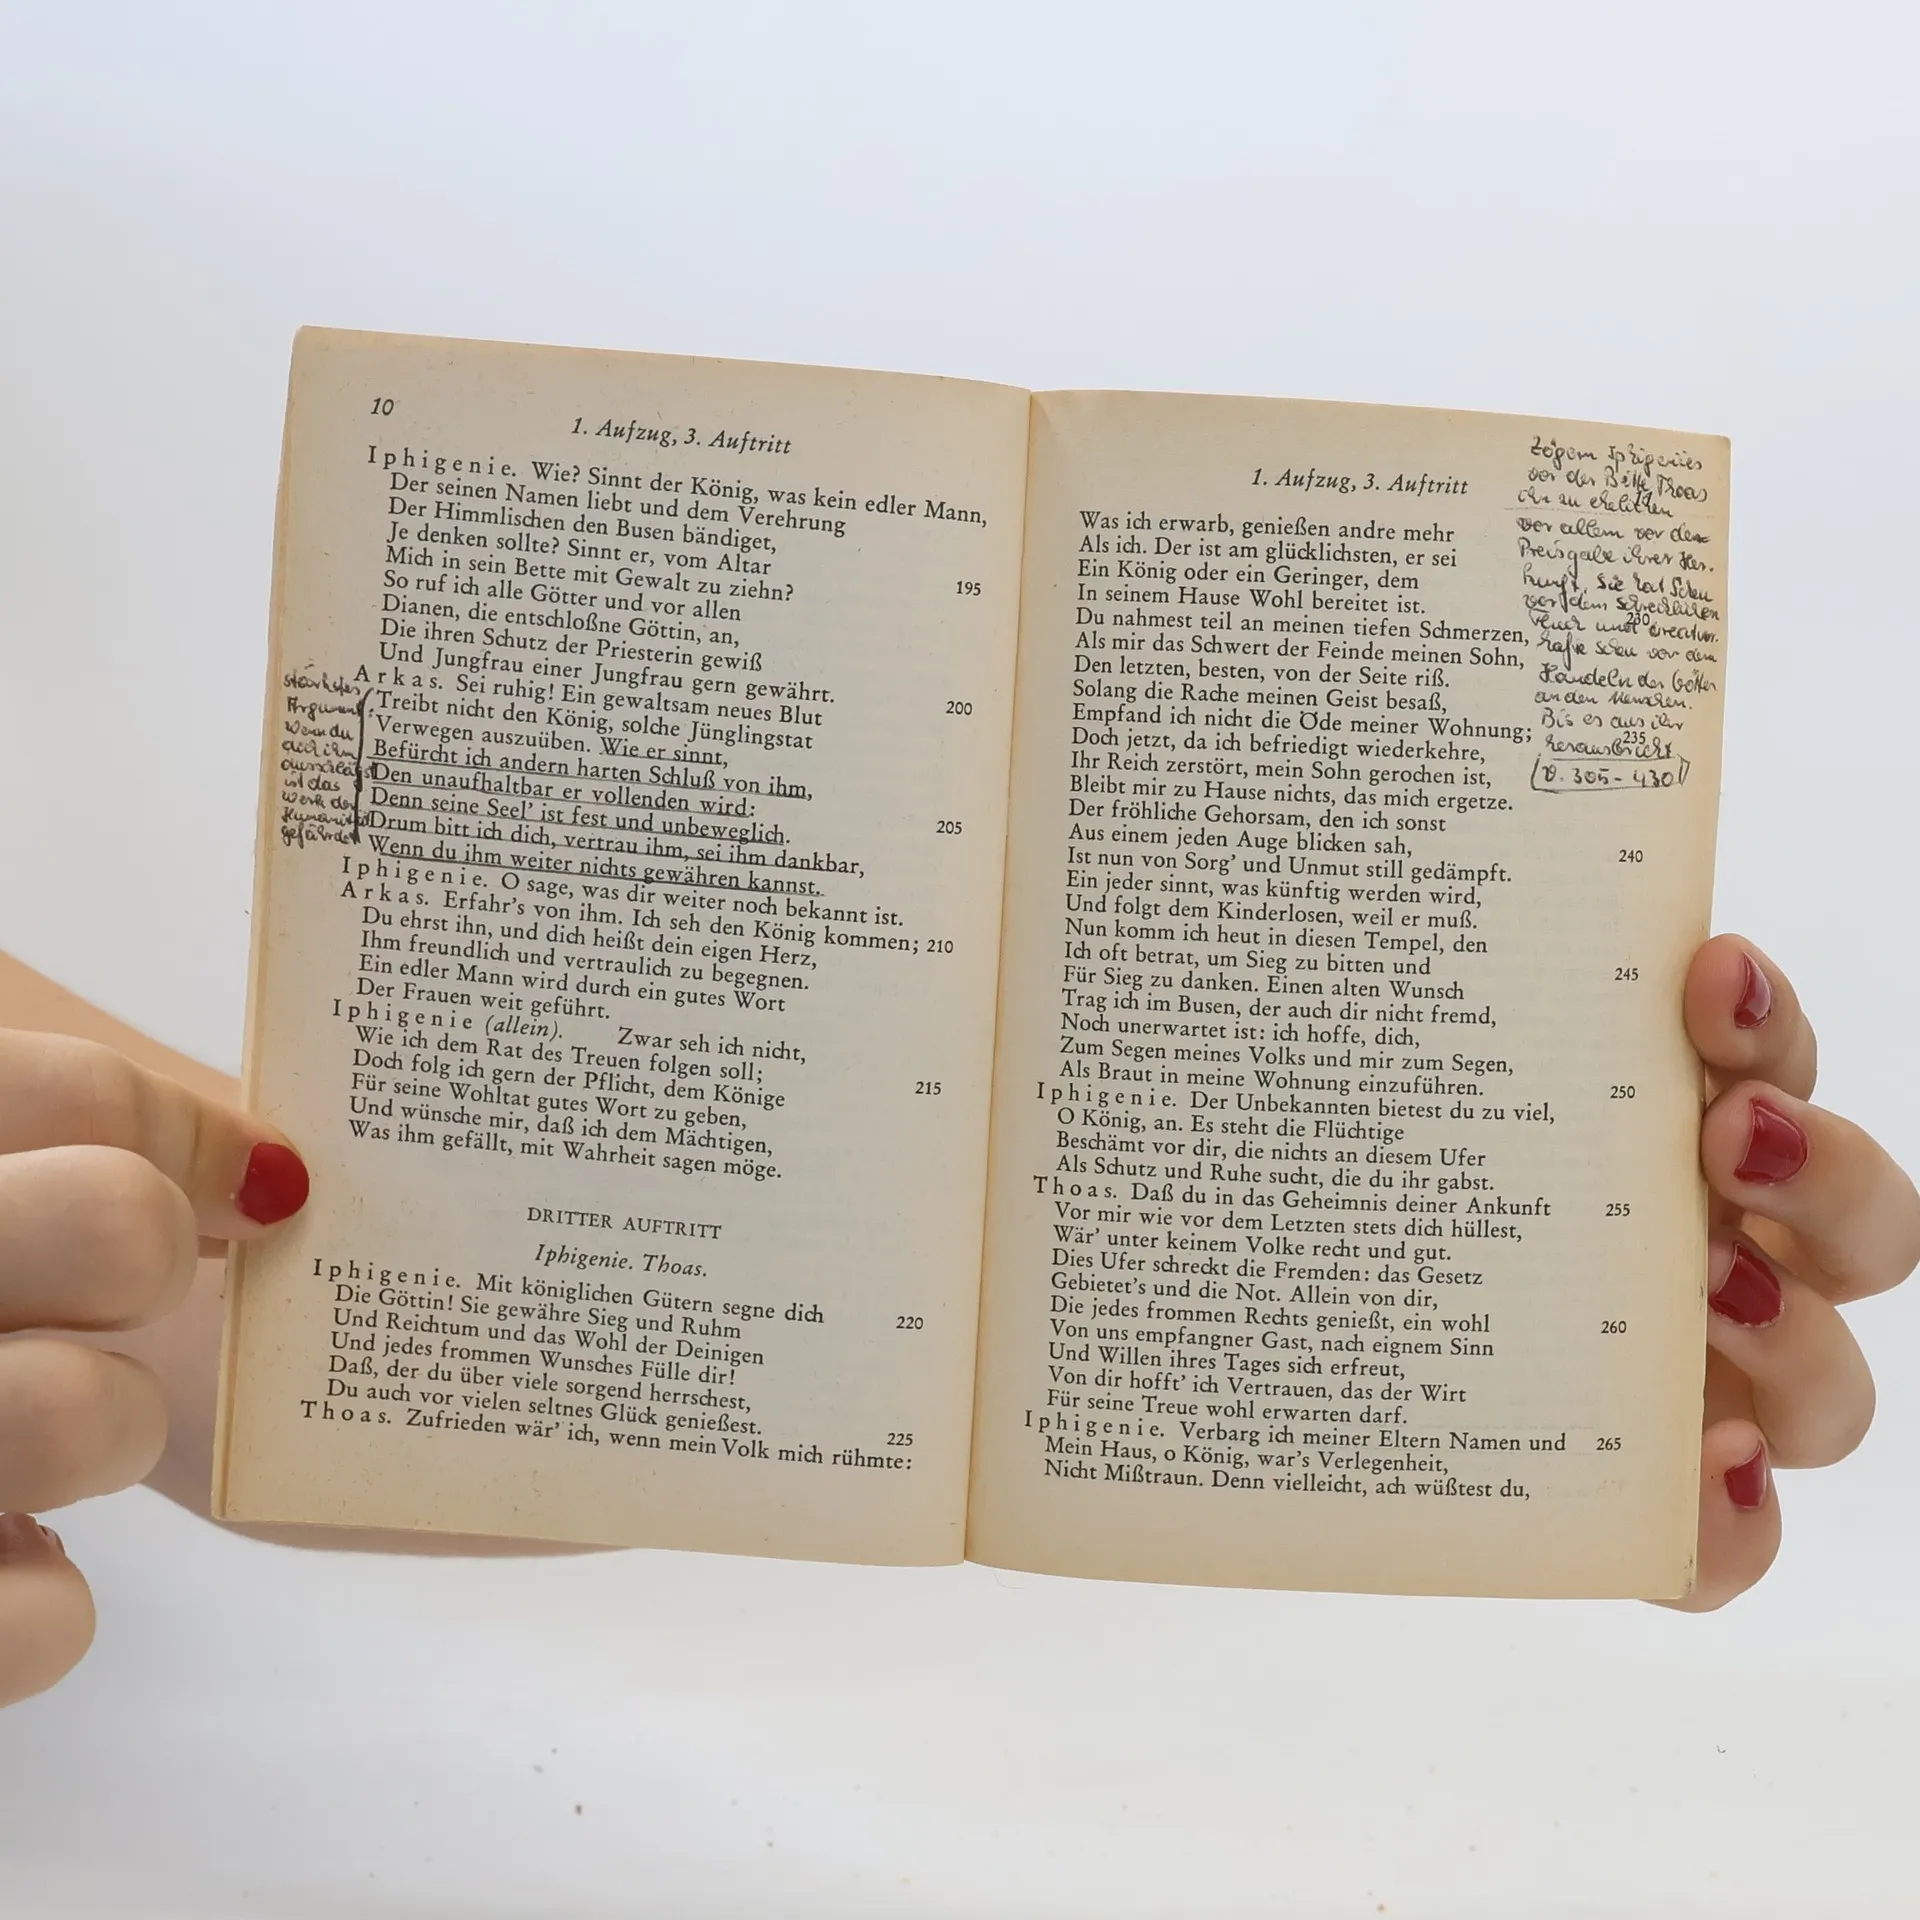 10
1. Aufzug, 3. Auftritt
Iphigenie. Wie? Sinnt der König, was kein edler Mann,
Der seinen Namen liebt und dem Verehrung
Der Himmlischen den Busen bändiget,
Je denken sollte? Sinnt er, vom Altar
Mich in sein Bette mit Gewalt zu ziehn? 195
So ruf ich alle Götter und vor allen
Dianen, die entschloßne Göttin, an,
Die ihren Schutz der Priesterin gewiß
Und Jungfrau einer Jungfrau gern gewährt.
Arkas. Sei ruhig! Ein gewaltsam neues Blut 200
Treibt nicht den König, solche Jünglingstat
Verwegen auszuüben. Wie er sinnt,
Befürcht ich andern harten Schluß von ihm,
Den unaufhaltbar er vollenden wird:
Denn seine Seel' ist fest und unbeweglich. 205
Drum bitt ich dich, vertrau ihm, sei ihm dankbar,
Wenn du ihm weiter nichts gewähren kannst.
Iphigenie. O sage, was dir weiter noch bekannt ist.
Arkas. Erfahr's von ihm. Ich seh den König kommen; 210
Du ehrst ihn, und dich heißt dein eigen Herz,
Ihm freundlich und vertraulich zu begegnen.
Ein edler Mann wird durch ein gutes Wort
Der Frauen weit geführt.
Iphigenie (allein). Zwar seh ich nicht,
Wie ich dem Rat des Treuen folgen soll;
Doch folg ich gern der Pflicht, dem Könige 215
Für seine Wohltat gutes Wort zu geben,
Und wünsche mir, daß ich dem Mächtigen,
Was ihm gefällt, mit Wahrheit sagen möge.
DRITTER AUFTRITT
Iphigenie. Thoas.
Iphigenie. Mit königlichen Gütern segne dich
Die Göttin! Sie gewähre Sieg und Ruhm 220
Und Reichtum und das Wohl der Deinigen
Und jedes frommen Wunsches Fülle dir!
Daß, der du über viele sorgend herrschest,
Du auch vor vielen seltnes Glück genießest.
Thoas. Zufrieden wär' ich, wenn mein Volk mich rühmte: 225
stärkstes
Argument:
Wenn du
dich ihm
ausschlägst
ist das
Werk der
Humanität
gefährdet
1. Aufzug, 3. Auftritt 11
Was ich erwarb, genießen andre mehr
Als ich. Der ist am glücklichsten, er sei
Ein König oder ein Geringer, dem
In seinem Hause Wohl bereitet ist.
Du nahmest teil an meinen tiefen Schmerzen, 230
Als mir das Schwert der Feinde meinen Sohn,
Den letzten, besten, von der Seite riß.
Solang die Rache meinen Geist besaß,
Empfand ich nicht die Öde meiner Wohnung;
Doch jetzt, da ich befriedigt wiederkehre, 235
Ihr Reich zerstört, mein Sohn gerochen ist,
Bleibt mir zu Hause nichts, das mich ergetze.
Der fröhliche Gehorsam, den ich sonst
Aus einem jeden Auge blicken sah,
Ist nun von Sorg' und Unmut still gedämpft. 240
Ein jeder sinnt, was künftig werden wird,
Und folgt dem Kinderlosen, weil er muß.
Nun komm ich heut in diesen Tempel, den
Ich oft betrat, um Sieg zu bitten und
Für Sieg zu danken. Einen alten Wunsch 245
Trag ich im Busen, der auch dir nicht fremd,
Noch unerwartet ist: ich hoffe, dich,
Zum Segen meines Volks und mir zum Segen,
Als Braut in meine Wohnung einzuführen.
Iphigenie. Der Unbekannten bietest du zu viel, 250
O König, an. Es steht die Flüchtige
Beschämt vor dir, die nichts an diesem Ufer
Als Schutz und Ruhe sucht, die du ihr gabst.
Thoas. Daß du in das Geheimnis deiner Ankunft
Vor mir wie vor dem Letzten stets dich hüllest, 255
Wär' unter keinem Volke recht und gut.
Dies Ufer schreckt die Fremden: das Gesetz
Gebietet's und die Not. Allein von dir,
Die jedes frommen Rechts genießt, ein wohl
Von uns empfangner Gast, nach eignem Sinn 260
Und Willen ihres Tages sich erfreut,
Von dir hofft' ich Vertrauen, das der Wirt
Für seine Treue wohl erwarten darf.
Iphigenie. Verbarg ich meiner Eltern Namen und 265
Mein Haus, o König, war's Verlegenheit,
Nicht Mißtraun. Denn vielleicht, ach wüßtest du,
Zögern Iphigenies
vor der Bitte Thoas
ihn zu ehelichen
vor allem vor der
Preisgabe ihrer Her-
kunft. Sie hat Scheu
vor dem schrecklichen
und
hafte Scheu vor dem
Handeln der Götter
an den Menschen.
Bis es aus ihr
herausbricht
V. 305-430